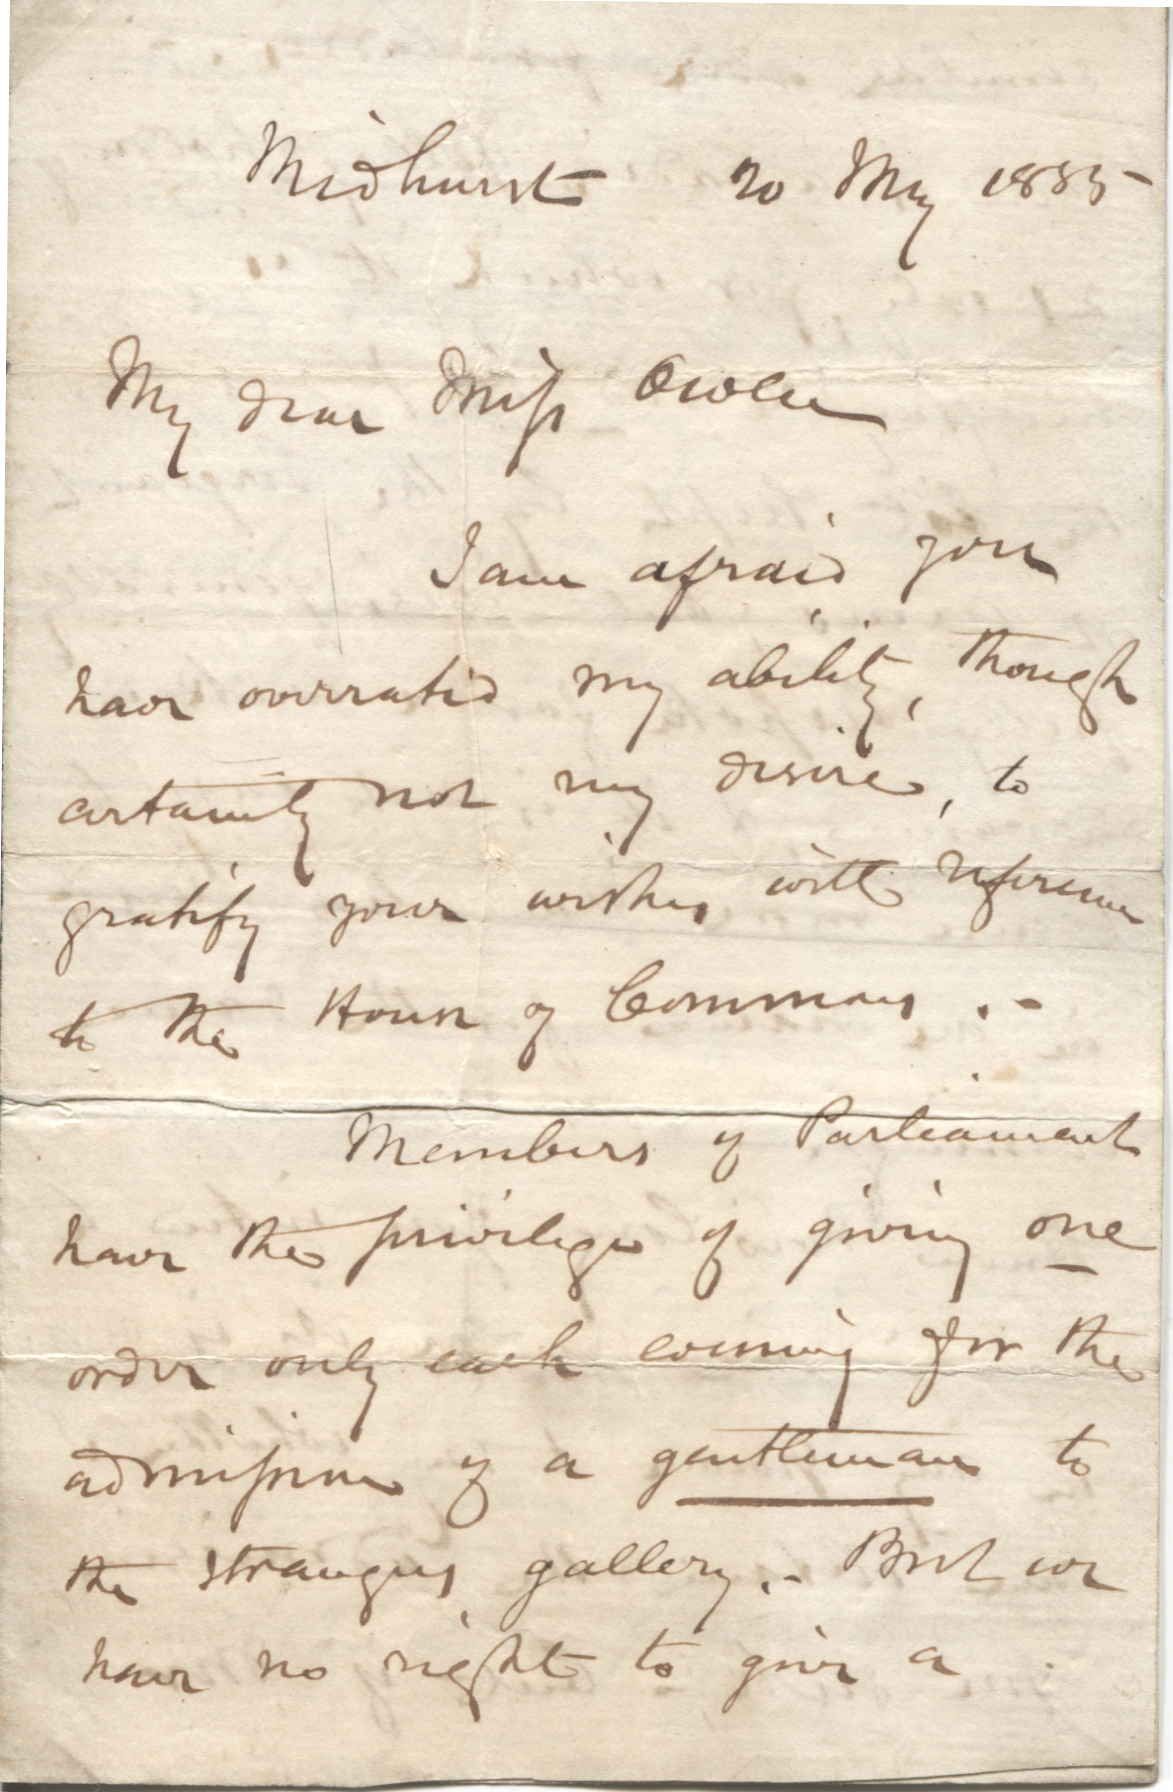 Midhurst 20 May
My dear Miss
I am afraid you
have overrated my ability, though
certainly not my desire, to
gratify your wishes with reference
to the House of Commons .-
Members of Parliament
have the privilege of giving one
order only each evening for the
admission of a gentleman to
the strangers gallery.- But we
have no right to give a